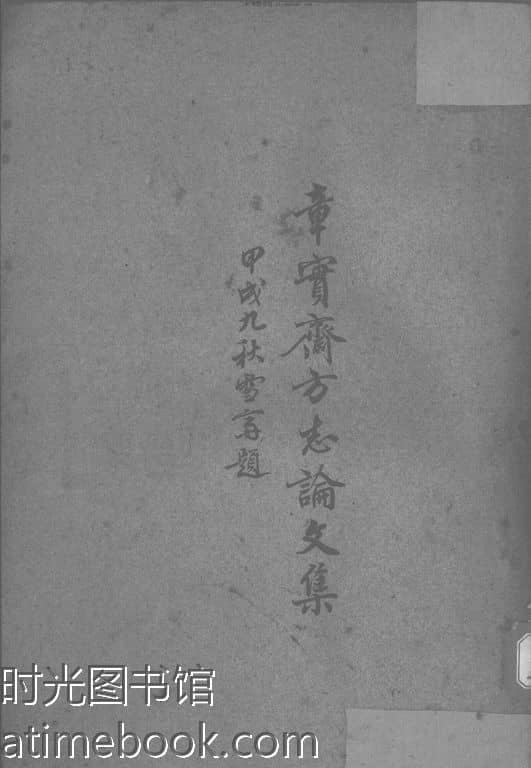 章實齋方志論文集
甲戌九秋雪寄題
时光图书馆
atimebook.com